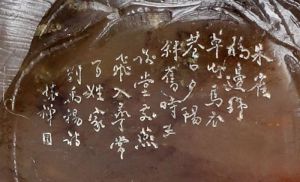 朱雀
橋邊野
草花烏衣
巷口夕陽
斜舊時王
謝堂前燕
飛入尋常
百姓家
劉禹錫詩